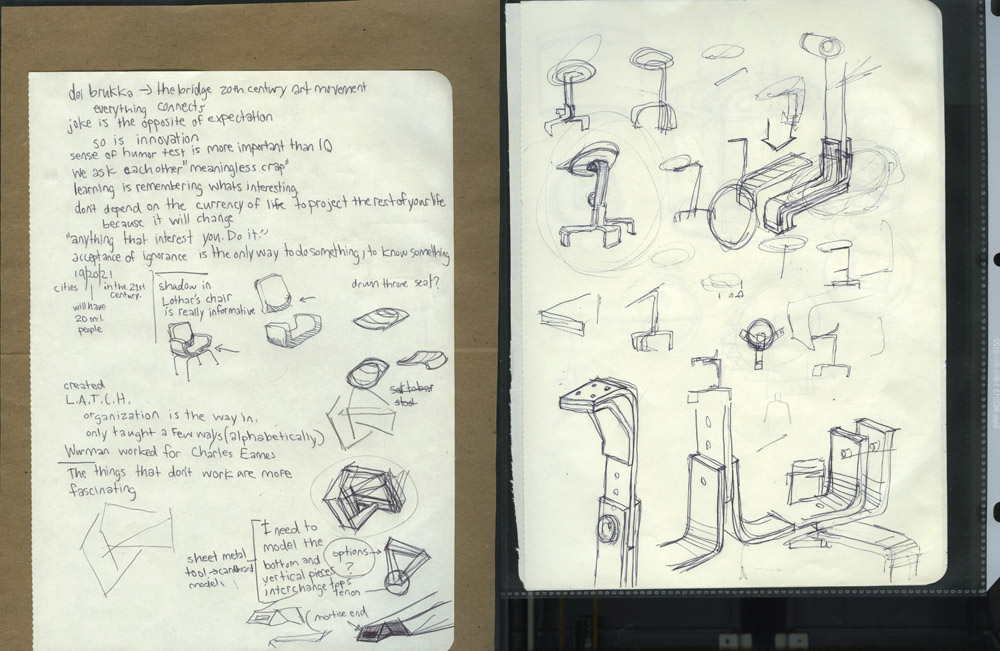 doi brukka → the bridge 20th century art movement
everything connects
joke is the opposite of expectation
so is innovation
sense of humor test is more important than IQ
we ask each other "meaningless crap"
learning is remembering whats interesting
don't depend on the currency of life to project the rest of your life
because it will change
"anything that interest you. Do it."
acceptance of ignorance is the only way to do something, to know something
19/20/21
cities
in the 21st
century.
will have
20 mil.
people
shadow in
Lothar's chair
is really informative
drum throne seat?
stool
created
L.A.T.C.H.
organization is the way in.
only taught a few ways (alphabetically)
Wurman worked for Charles Eames
The things that don't work are more
fascinating
sheet metal
tool → cardboard
model
I need to
model the
bottom and
vertical pieces
interchange tops
options
?
tenon
(mortise end